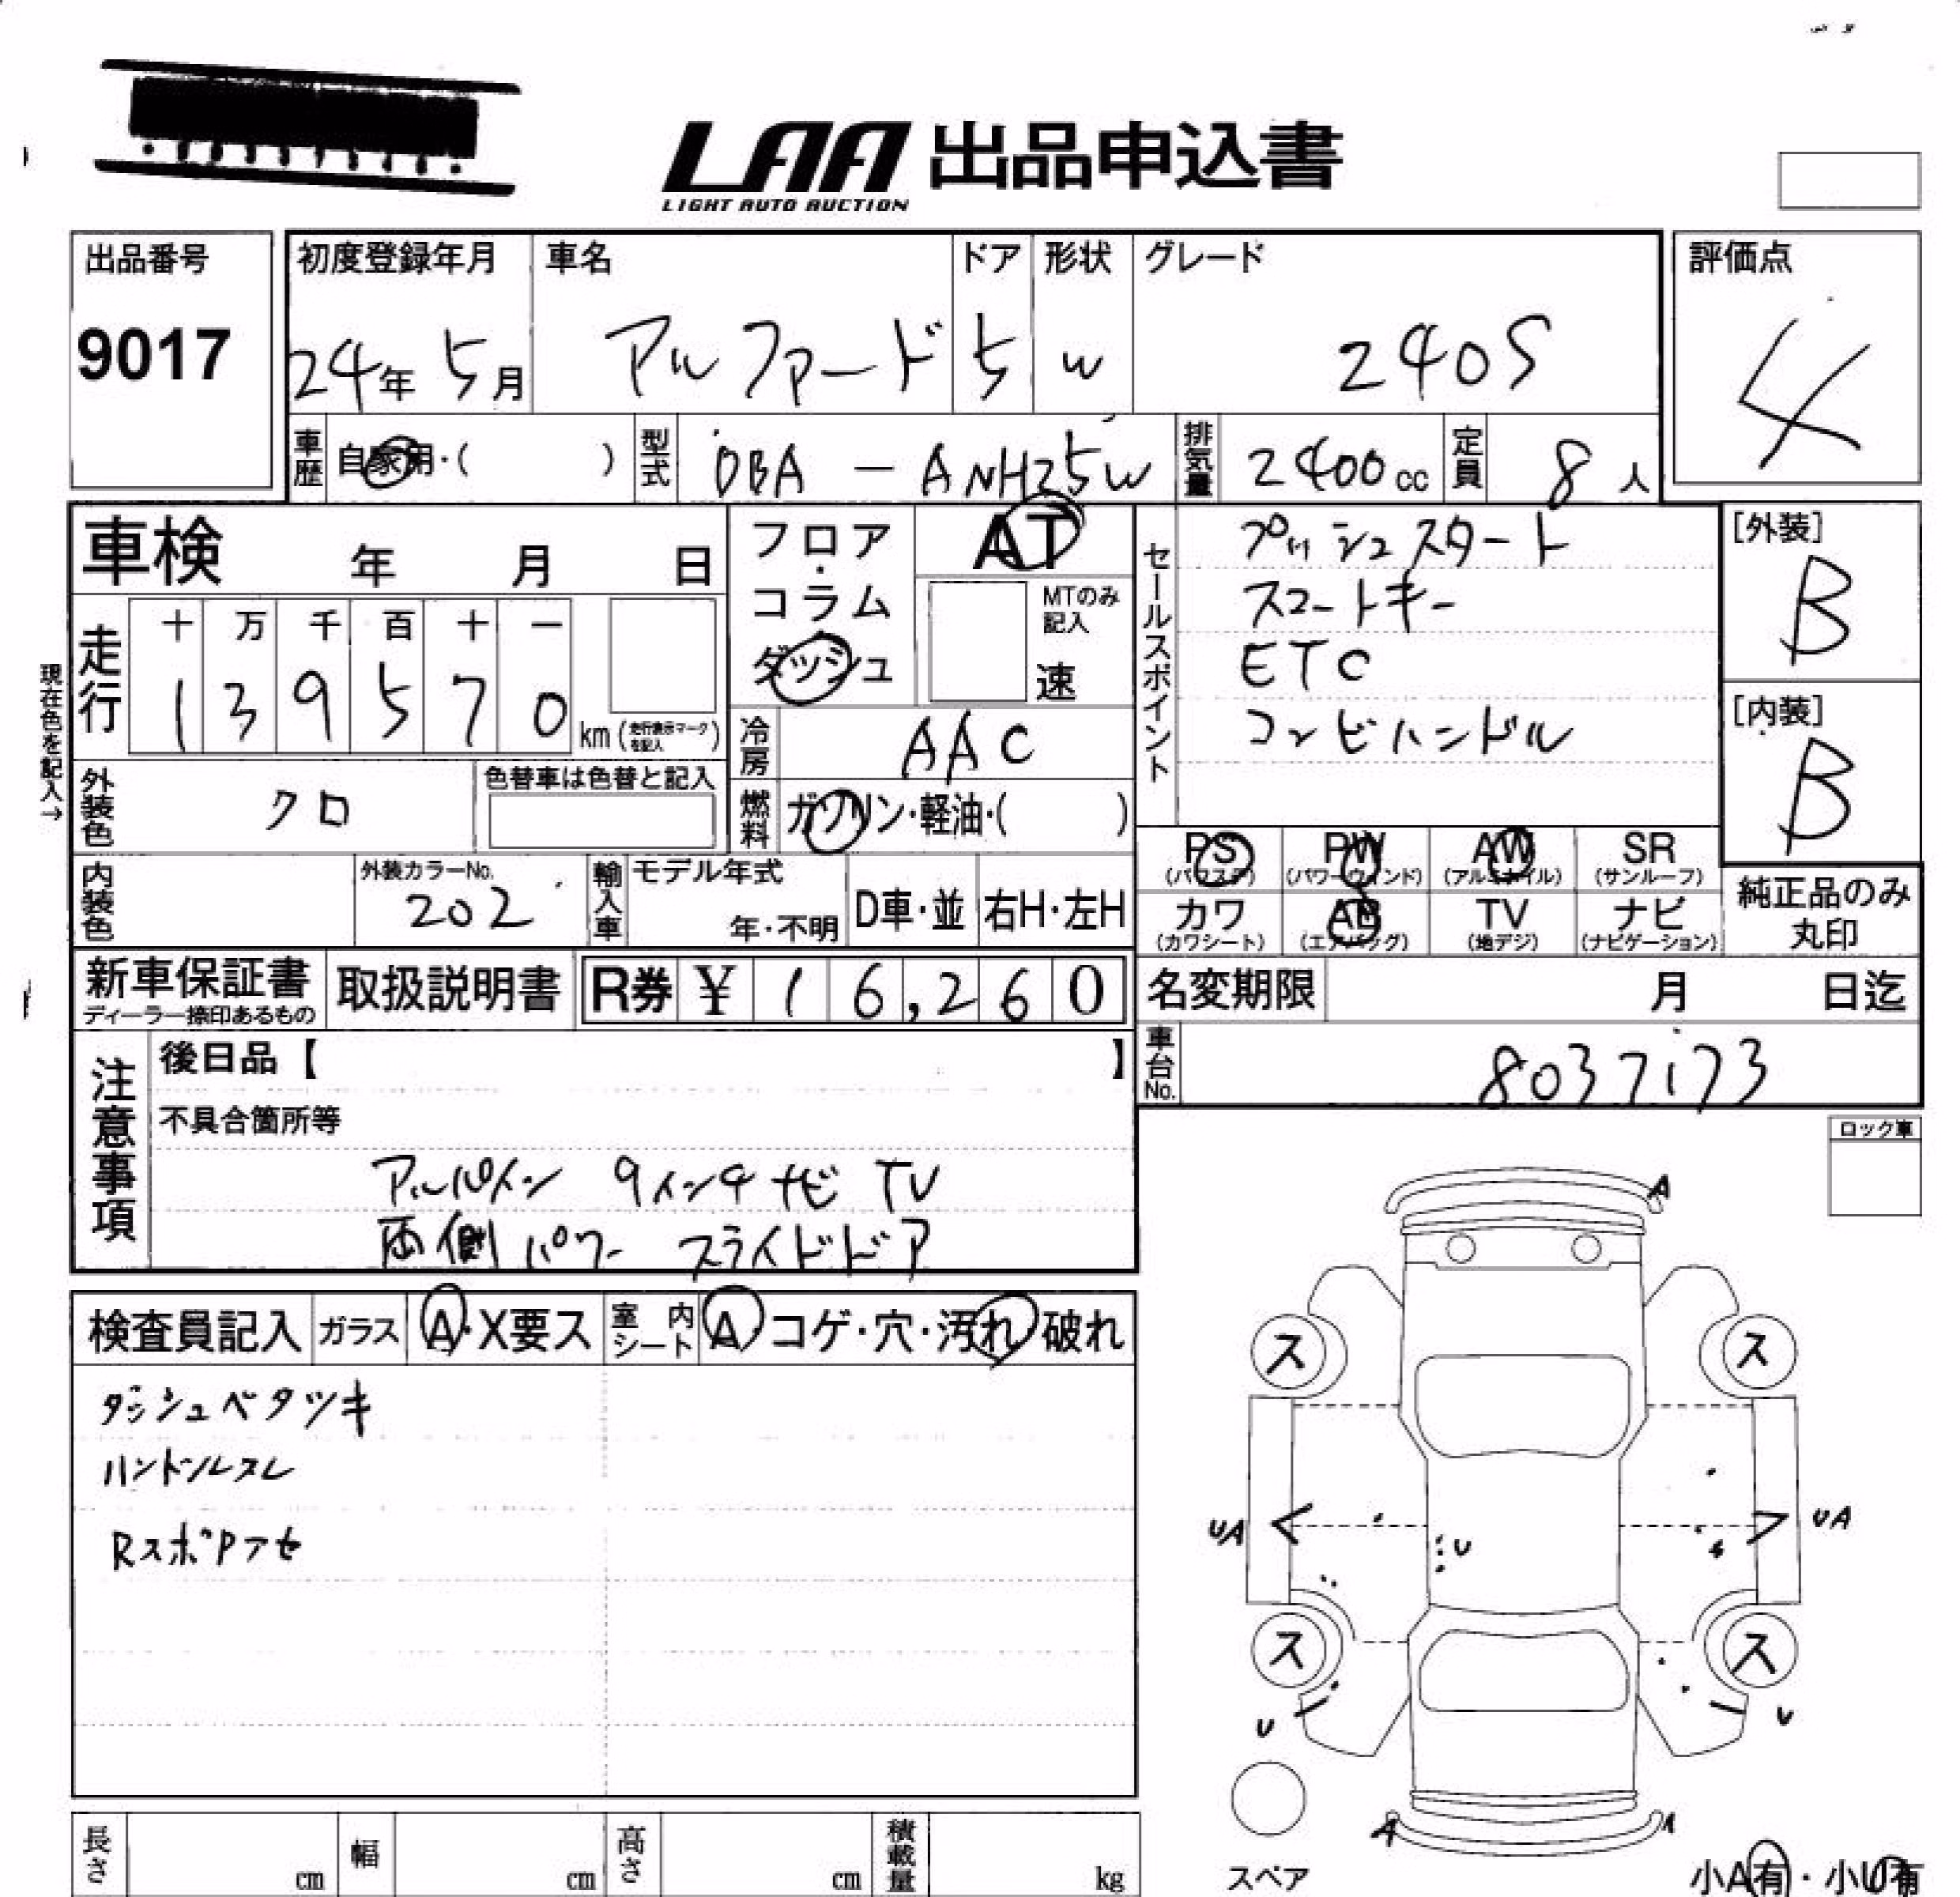 LAA 出品申込書
LIGHT AUTO AUCTION
出品番号
9017
初度登録年月 車名 ドア 形状 グレード 評価点
24年 5月 アルファード 5 W 240S 4
車歴 自家用・( ) 型式 DBA - ANH25W 排気量 2400cc 定員 8人
車検 年 月 日
フロア・コラム・ダッシュ
AT
MTのみ記入
速
セールスポイント
プッシュスタート
スマートキー
ETC
コンビハンドル
[外装]
B
[内装]
B
現在色を記入→
走行 十 万 千 百 十 一
1 3 9 5 7 0 km (走行表示マークを記入)
冷房 AAC
外装色 クロ 色替車は色替と記入
燃料 ガソリン・軽油・( )
PS PW AW SR
(パワステ) (パワーウィンド) (アルミホイル) (サンルーフ)
カワ AB TV ナビ
(カワシート) (エアバッグ) (地デジ) (ナビゲーション)
純正品のみ
丸印
内装色 外装カラーNo. 202 輸入車 モデル年式 年・不明 D車・並 右H・左H
新車保証書 取扱説明書 R券 ¥ 16,260
ディーラー捺印あるもの
名変期限 月 日迄
車台No. 8037173
注意事項
後日品【 】
不具合箇所等
アルパイン 9インチナビ TV
両側パワースライドドア
ロック車
検査員記入 ガラス A・X要ス 室内シート A コゲ・穴・汚れ 破れ
ダッシュベタツキ
ハンドルスレ
RスポPアセ
A
ス ス
UA U UA
ス ス
U U
A A
スペア
小A有・小U有
長さ cm 幅 cm 高さ cm 積載量 kg